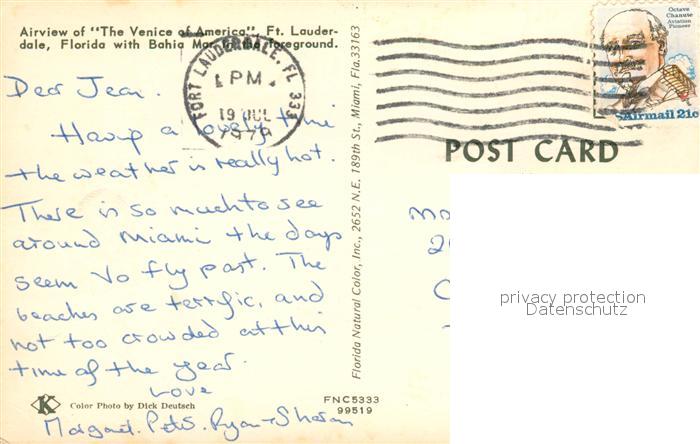 Airview of "The Venice of America", Ft. Lauder-
dale, Florida with Bahia Mar in the foreground.
Dear Jean.
Having a lovely time
the weather is really hot.
There is so much to see
around Miami the days
seem to fly past. The
beaches are terrific, and
not too crowded at this
time of the year.
Love
Margaret. Peter. Ryan + Sharon
K Color Photo by Dick Deutsch
FNC5333
99519
Florida Natural Color, Inc., 2652 N.E. 189th St., Miami, Fla. 33163
FORT LAUDERDALE, FL 333
PM
19 JUL
1979
Octave
Chanute
Aviation
Pioneer
USAirmail 21c
POST CARD
privacy protection
Datenschutz